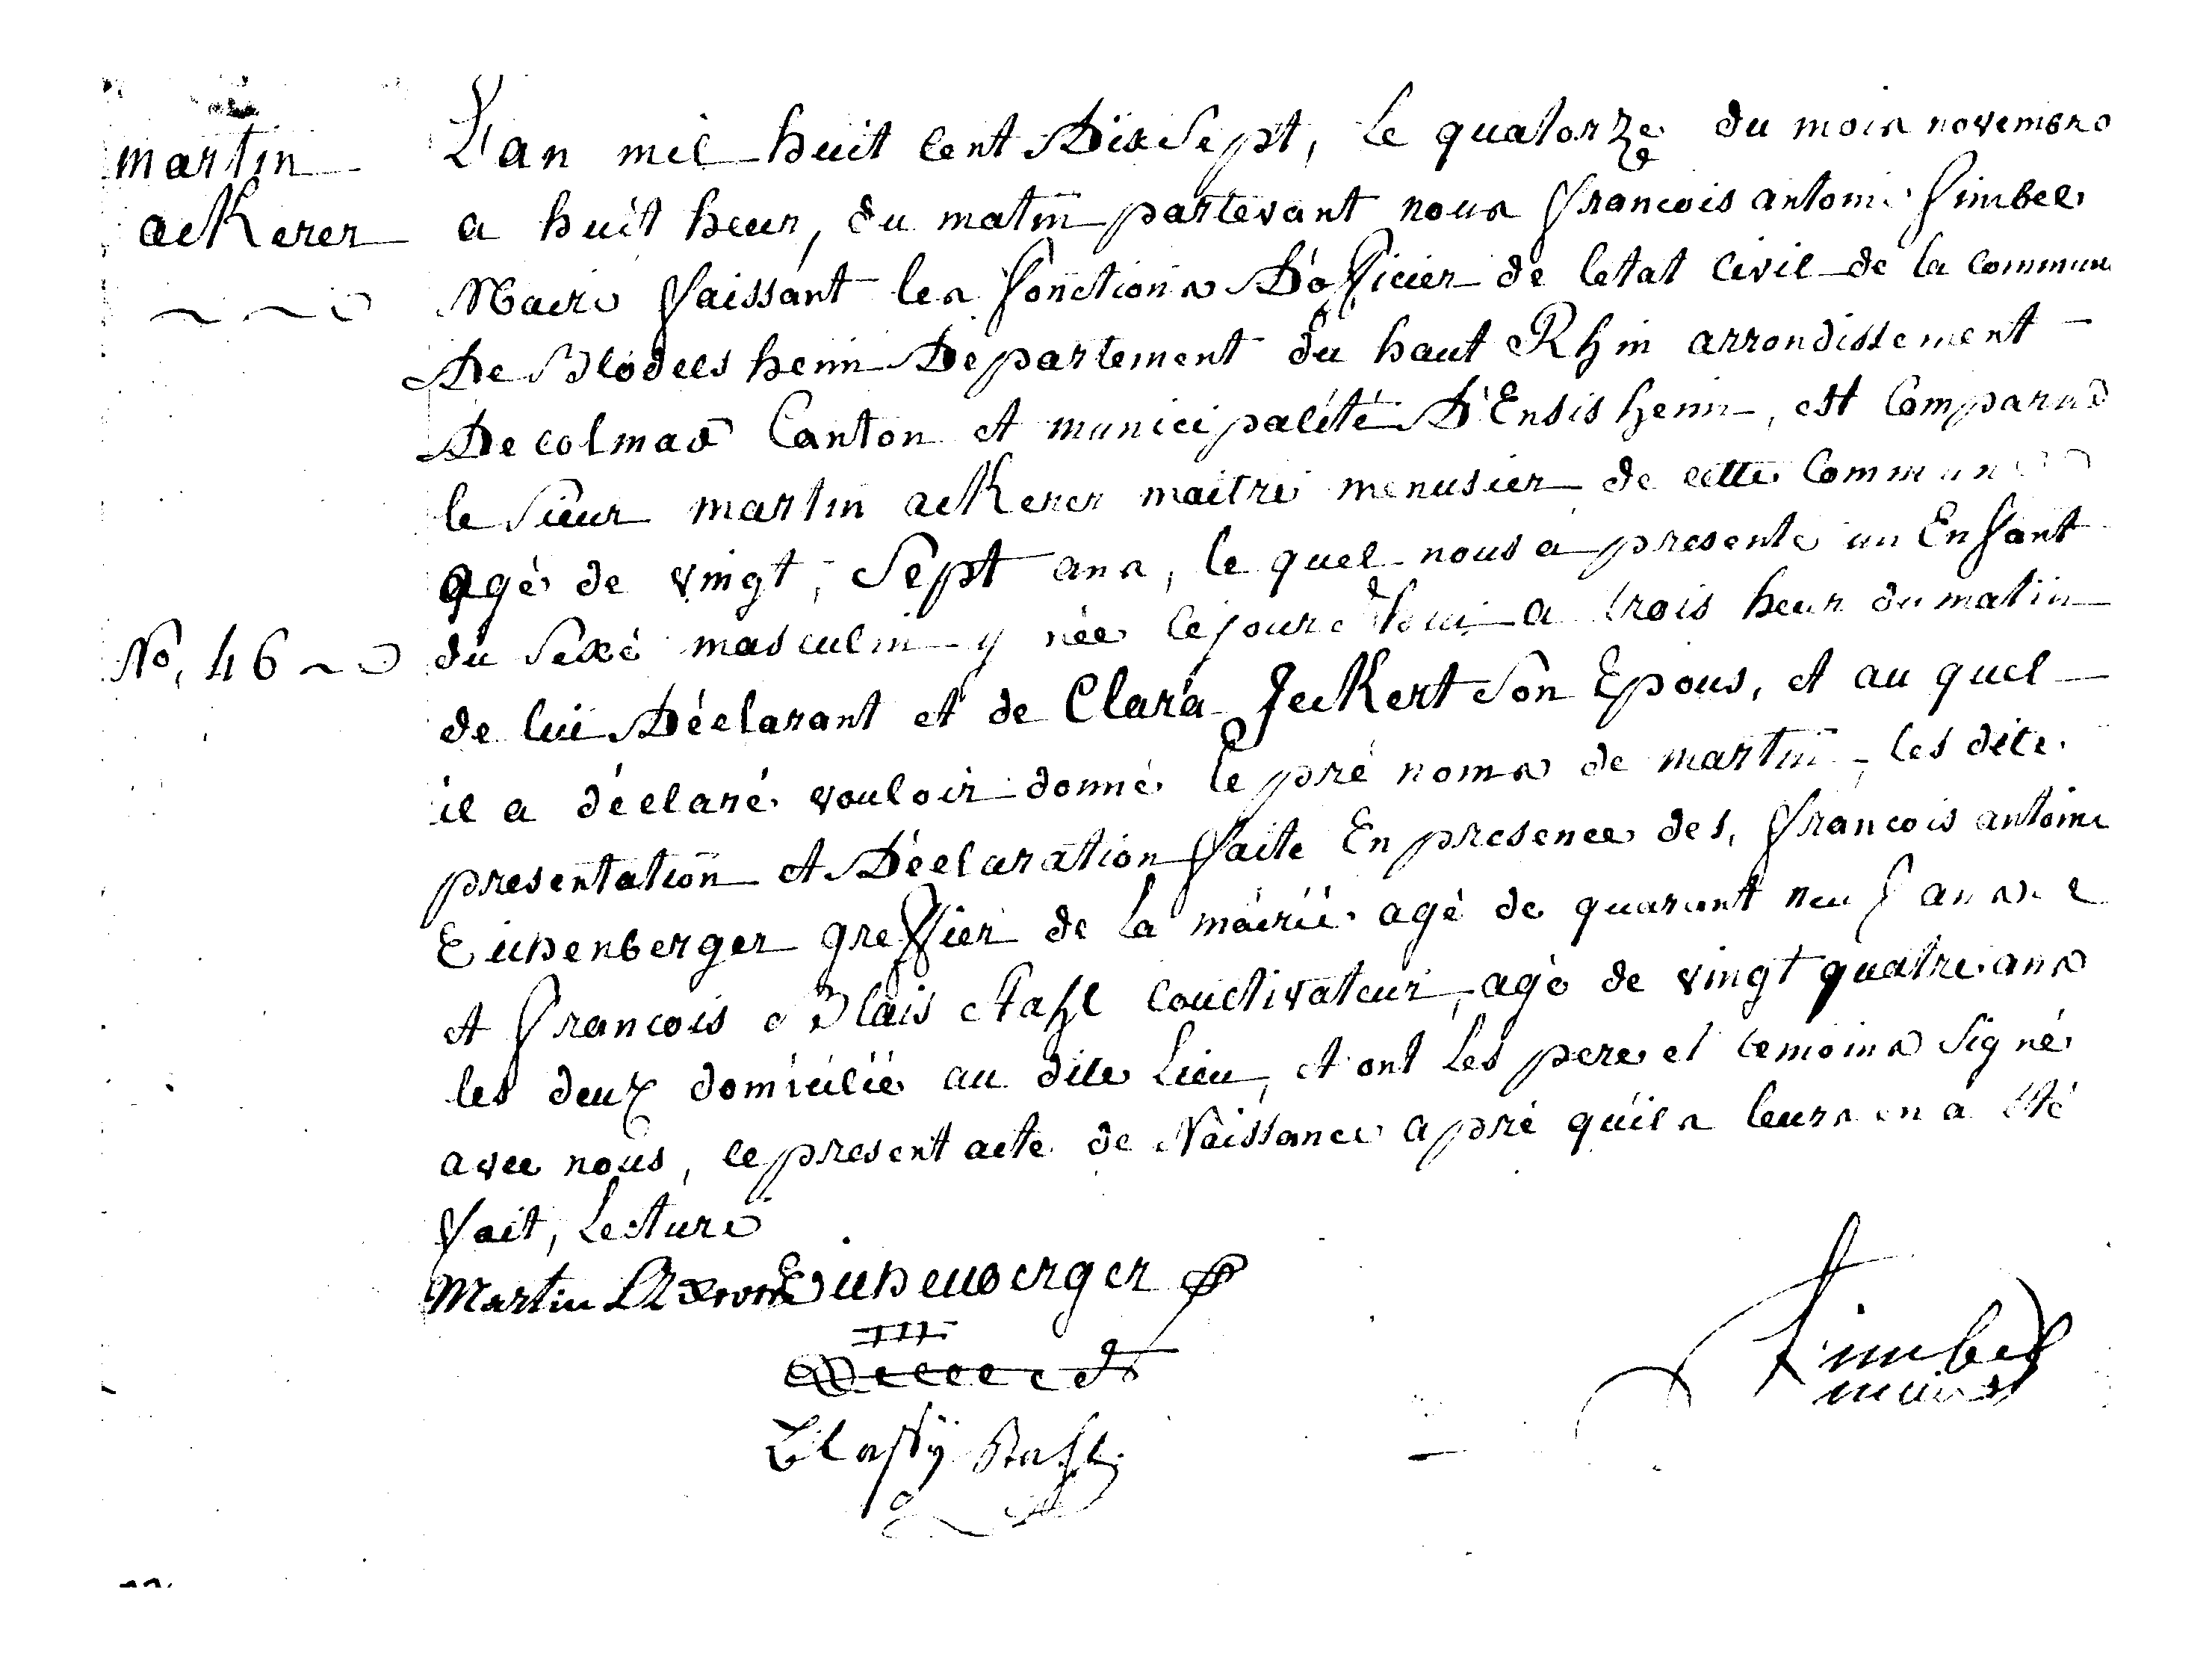 martin
ackerer
No, 46
L'an mil huit cent Dix Sept, le quatorze du mois novembre
a huit heur, du matin partevant nous francois antoine fimbel
Maire faissant les fonctions D'officier de letat Civil de la commun
De Blodelsheim Departement du haut Rhin arrondissement
De colmar Canton et municipalité D'Ensisheim, est Comparud
le Sieur martin ackerer maitre menusier de cette Commune
agé de vingt, Sept ans, le quel nous a presente un Enfant
du Sexe masculin y née cejourdhui a trois heur du matin
de lui Déclarant et de Clara Jeckert Son Epous, et au quel
il a déclaré vouloir donné le pré noms de martin, les dite
presentation et Déclaration faite En presence des, francois antoine
Eichenberger greffier de la mairie agé de quarant neuf ans
et francois Blais Stahl Coultivateur, agé de vingt quatre ans
les deux domicilié au dite Lieu, et ont Les pere et temoins Signé
avec nous, le present acte de Naissance apré quils leurs en a été
fait, Lecture
Martin Eichenberger
fimbel
maire
Blassÿ Stahl